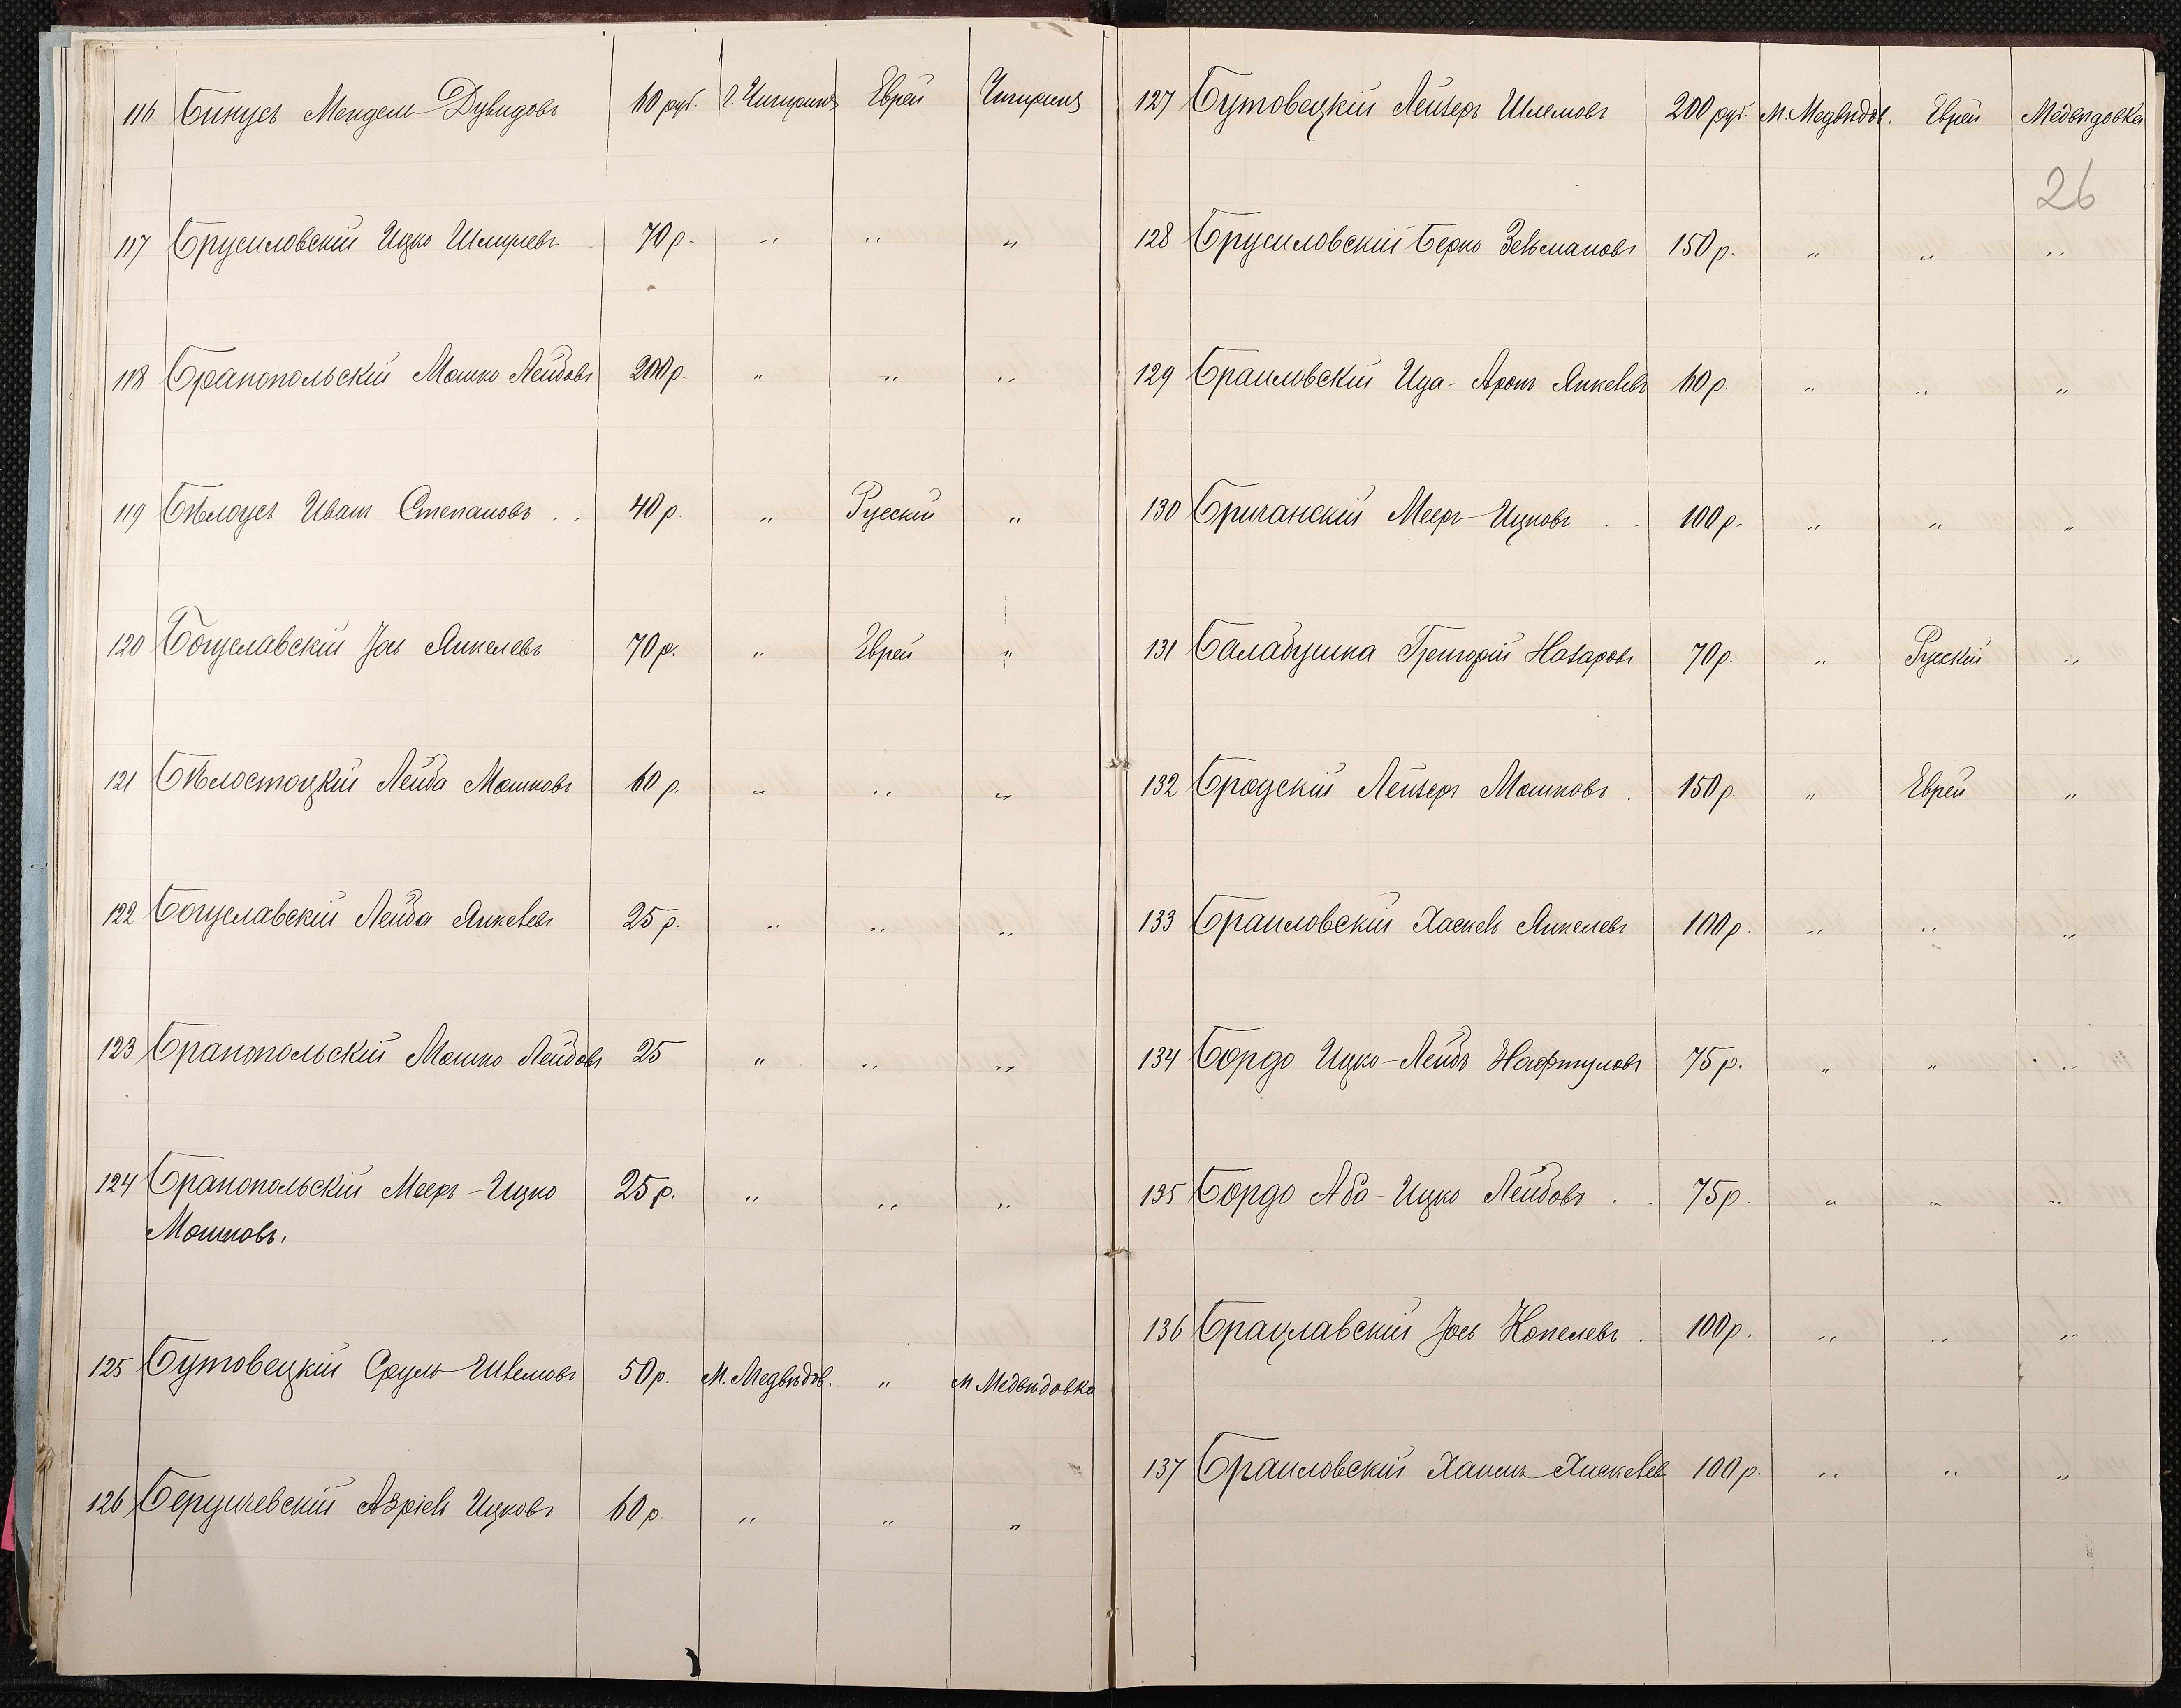 116 Бинусъ Мендель Дувидовъ 60 руб. г. Чигиринъ Еврей Чигиринъ
117 Брусиловскій Ицко Шмулевъ 70 р. " " "
118 Бранопольскій Мошко Лейбовъ 200 р. " " "
119 Бѣлоусъ Иванъ Степановъ . . 40 р. " Русскій "
120 Богуславскій Іось Янкелевъ 70 р. " Еврей "
121 Бѣлостоцкій Лейба Мошковъ 60 р. " " "
122 Богуславскій Лейба Янкелевъ 25 р. " " "
123 Бранопольскій Мошко Лейбовъ 25 " " "
124 Бранопольскій Мееръ-Ицко 25 р. " " "
Мошковъ.
125 Бутовецкій Сруль Шлемовъ 50 р. М. Медвѣдов. " М Медвѣдовка
126 Бердичевскій Азріель Ицковъ 60 р. " " "
127 Бутовецкій Лейзеръ Шлемовъ 200 руб. М. Медвѣдов. Еврей Медвѣдовка
26
128 Брусиловскій Берко Зельмановъ 150 р. " " "
129 Браиловскій Ида-Аронъ Янкелевъ 60 р. " " "
130 Бричанскій Мееръ Ицковъ . . 100 р. " " "
131 Балабушка Григорій Назаровъ 70 р. " Русскій "
132 Бродскій Лейзеръ Мошковъ . 150 р. " Еврей "
133 Браиловскій Хаскель Янкелевъ 100 р. " " "
134 Бордо Ицко-Лейбъ Нафтуловъ 75 р. " " "
135 Бордо Або-Ицко Лейбовъ . . 75 р. " " "
136 Брацлавскій Іось Копелевъ . 100 р. " " "
137 Браиловскій Хаимъ Хаскелев 100 р. " " "